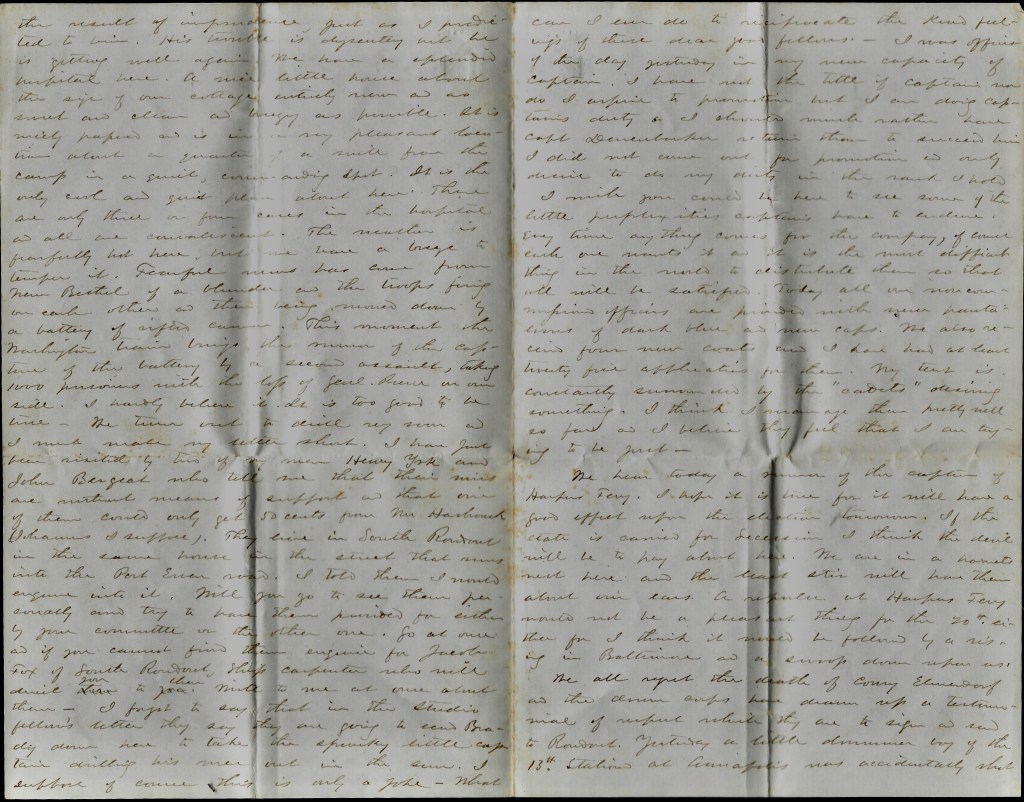 the result of imprudence just as I predic-
ted to him. His trouble is dysentery but he
is getting well again. We have a splendid
hospital here. A nice little house about
the size of our cottage entirely new and as
sweet and clean and breezy as possible. It is
nicely papered and is in a very pleasant loca-
tion about a quarter of a mile from the
camp in a quiet, commanding spot. It is the
only cool and quiet place about here. There
are only three or four cases in the hospital
and all are convalescent. The weather is
fearfully hot here, but we have a breeze to
temper it. Fearful news has come from
New Bethel of a blunder and the troops firing
on each other and then being mowed down by
a battery of rifled cannon. This moment the
Washington train brings the rumor of the cap-
ture of the battery by a second assault, taking
1000 prisoners with the loss of Genl. Pierce on our
side. I hardly believe it. It is too good to be
true — We turn out to drill very soon and
I must make my letter short. I have just
been visited by two of my men Henry York and
John Bengeat who tell me that their wives
are without means of support and that one
of them could only get 50 cents from Mr Hasbrouck
(Johannis I suppose). They live in South Rondout
in the same house in the street that runs
into the Port Ewen road. I told them I would
enquire into it. Will you go to see them per-
sonally and try to have them provided for either
by your committee or the other one. Go at once
and if you cannot find them enquire for Jacob
Fox of South Rondout, Ship carpenter who will
direct you to them. Write to me at once about
them — I forgot to say that in the Studio
fellow's letter they say they are going to send Bra-
dy down here to take the spunky little cap-
tain drilling his men out in the sun. I
suppose of course this is only a joke — What
can I ever do to reciprocate the kind feel-
ings of these dear good fellows. — I was officer
of the day yesterday in my new capacity of
Captain. I have not the title of captain nor
do I aspire to promotion but I am doing cap-
tains duty & I should much rather have
Capt return than to succeed him
I did not come out for promotion and only
desire to do my duty in the rank I hold
I wish you could be here to see some of the
little perplexities captains have to endure.
Every time anything comes for the company, of course
each one wants it and it is the most difficult
thing in the world to distribute them so that
all will be satisfied. Today all our noncom-
missioned officers are provided with new panta-
loons of dark blue and new caps. We also re-
ceived four new coats and I have had at least
twenty five applications for them. My tent is
constantly surrounded by the "cadets" desiring
something. I think I manage them pretty well
so far and I believe they feel that I am try-
ing to be just —
We hear today a rumor of the capture of
Harpers Ferry. I hope it is true for it will have a
good effect upon the election tomorrow. If the
state is carried for Secession I think the devil
will be to pay about here. We are in a hornets
nest here and the least stir will have them
about our ears. A repulse at Harpers Ferry
would not be a pleasant thing for the 20th ei-
ther for I think it would be followed by a ris-
ing in Baltimore and a swoop down upon us.
We all regret the death of Conny Elmendorf
and the drum corps have drawn up a testimo-
nial of respect which they are to sign and send
to Rondout. Yesterday a little drummer boy of the
13th stationed at Annapolis was accidentally shot